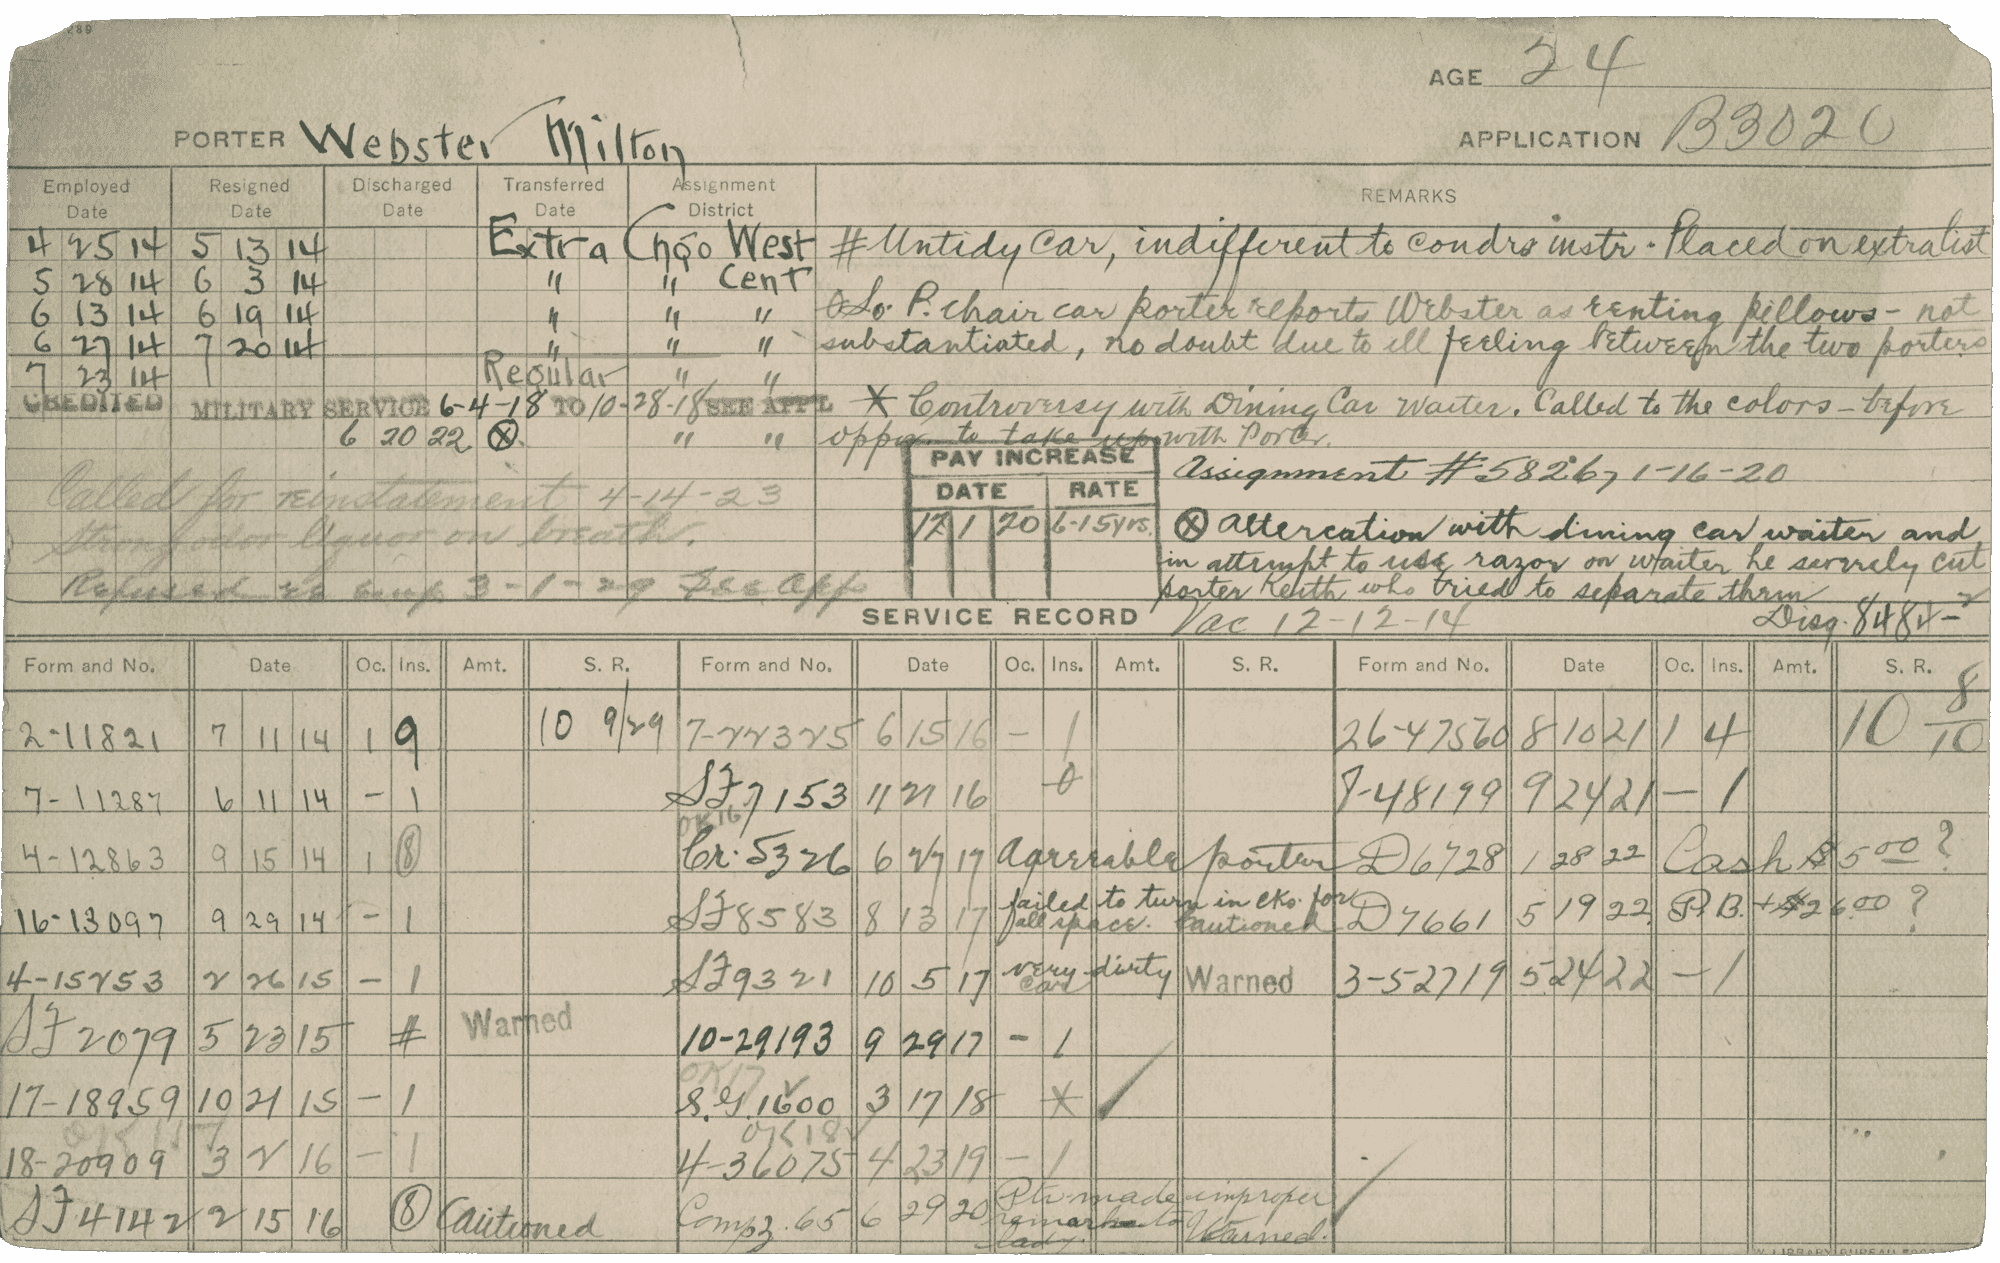 289
AGE 24
PORTER Webster Milton
APPLICATION B3020
Employed Date Resigned Date Discharged Date Transferred Date Assignment District REMARKS
4 25 14 5 13 14 Extra Chgo West # Untidy Car, indifferent to condrs instr - Placed on extra list
5 28 14 6 3 14 " " Cent
6 13 14 6 19 14 " " " So. P. chair car porter reports Webster as renting pillows - not
6 27 14 7 20 14 " " " substantiated, no doubt due to ill feeling between the two porters
7 23 14 Regular " "
CREDITED MILITARY SERVICE 6-4-18 TO 10-28-18 SEE APPL * Controversy with Dining Car Waiter. Called to the colors - before
6 20 22 ⊗ " " oppor. to take up with Porter.
PAY INCREASE
DATE RATE
12 1 20 6-15yrs.
Assignment #58267 1-16-20
Called for reinstatement 4-14-23
Strong odor liquor on breath.
Refused re emp. 3-1-29 See App
⊗ Altercation with dining car waiter and
in attempt to use razor on waiter he severely cut
porter Keith who tried to separate them
Disg. 8484-2
SERVICE RECORD Vac 12-12-14
Form and No. Date Oc. Ins. Amt. S. R. Form and No. Date Oc. Ins. Amt. S. R. Form and No. Date Oc. Ins. Amt. S. R.
2-11821 7 11 14 1 9 10 9/29 7-22325 6 15 16 - 1 26-47560 8 10 21 1 4 10 8/10
7-11287 6 11 14 - 1 SF7153 11 21 16 0 7-48199 9 24 21 - 1
OK16
4-12863 9 15 14 1 (8) Cr. 5326 6 27 17 Agreeable porter D6728 1 28 22 Cash $5.00 ?
16-13097 9 29 14 - 1 SF8583 8 13 17 failed to turn in cks. for all space. Cautioned D7661 5 19 22 P.B. + $26.00 ?
4-15253 2 26 15 - 1 SF9321 10 5 17 very dirty car Warned 3-52719 5 24 22 - 1
SF2079 5 23 15 # Warned 10-29193 9 29 17 - 1
OK17
17-18959 10 21 15 - 1 S.G. 1600 3 17 18 *
OK18
18-20909 3 2 16 - 1 4-36075 4 23 19 - 1
SF4142 2 15 16 (8) Cautioned Comp. 65 6 29 20 Ptr made improper remarks to lady. Warned.